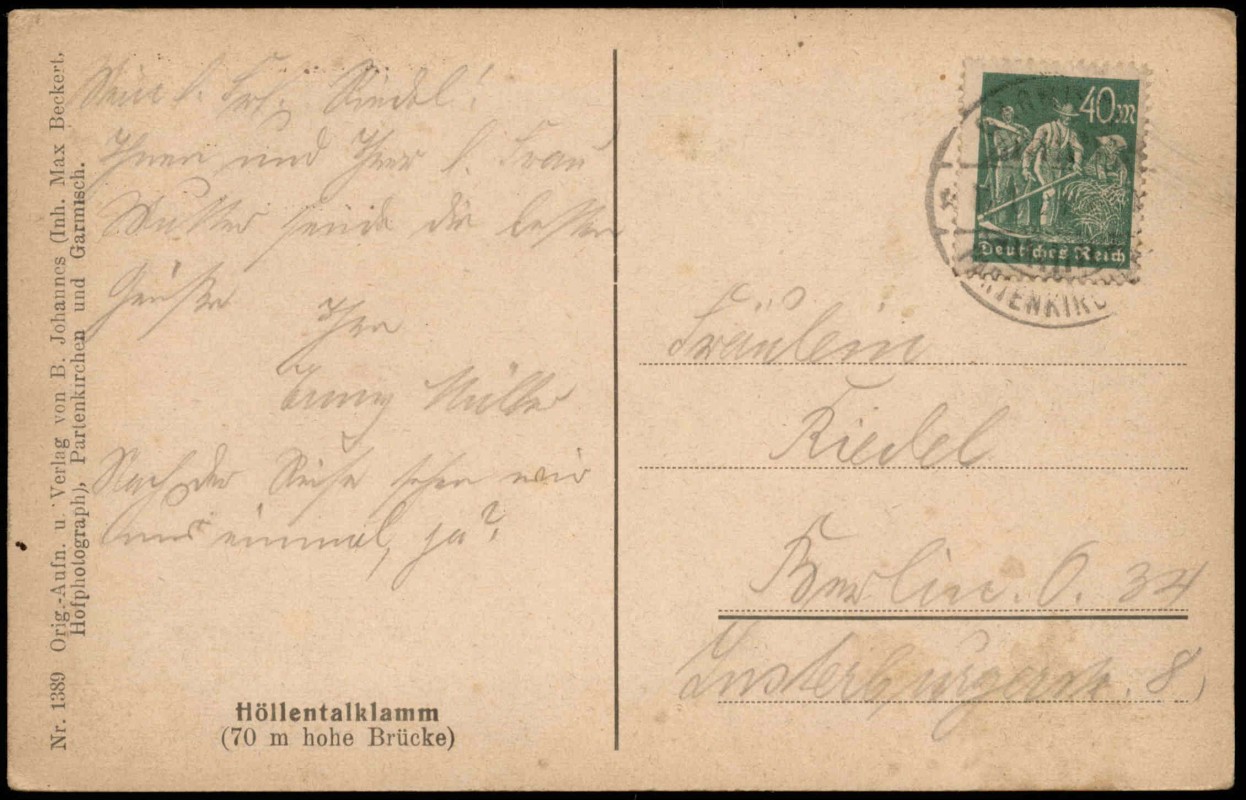 Mein l. Frl. Riedel!
Ihnen und Ihrer l. Frau
Mutter sende die besten
Grüße
Ihre
Müller
Nach der Reise sehen wir
uns einmal, ja?
Höllentalklamm
(70 m hohe Brücke)
Nr. 1389 Orig.-Aufn. u. Verlag von B. Johannes (Inh. Max Beckert,
Hofphotograph), Partenkirchen und Garmisch.
40 M
Deutsches Reich
Fräulein
Riedel
Berlin. O. 34
Insterburgerstr. 8